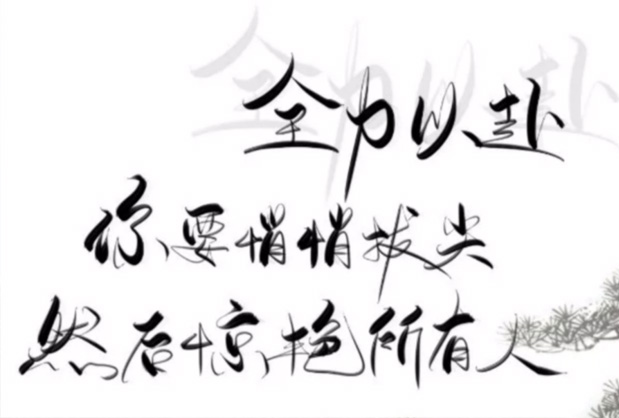 全力以赴
你要悄悄拔尖
然后惊艳所有人